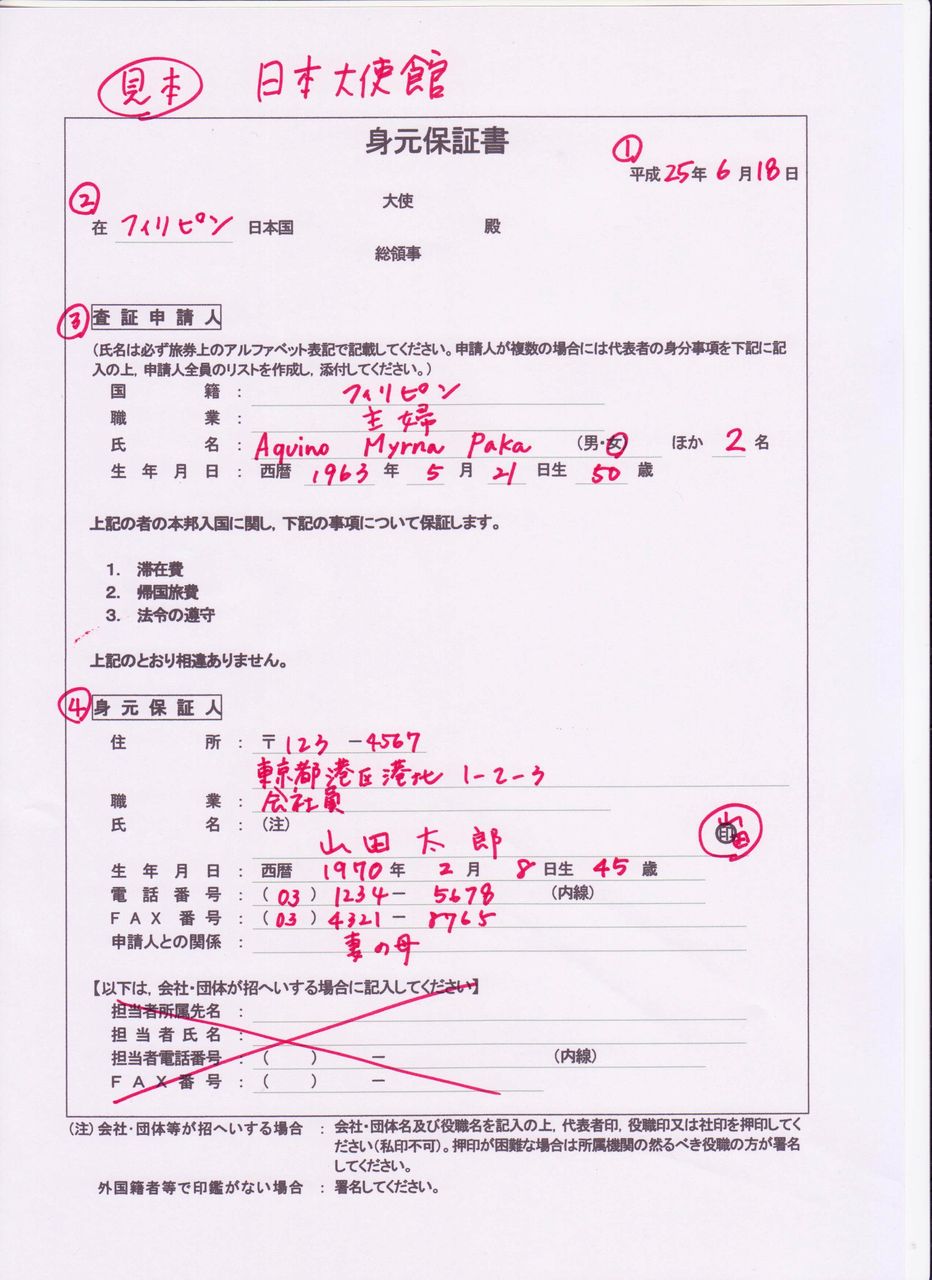 見本 日本大使館
身元保証書
① 平成25年6月18日
②
大使
在 フィリピン 日本国 殿
総領事
③ 査証申請人
(氏名は必ず旅券上のアルファベット表記で記載してください。申請人が複数の場合には代表者の身分事項を下記に記
入の上,申請人全員のリストを作成し,添付してください。)
国籍: フィリピン
職業: 主婦
氏名: Aquino Myrna Paka (男・女) ほか 2 名
生年月日: 西暦 1963 年 5 月 21 日生 50 歳
上記の者の本邦入国に関し,下記の事項について保証します。
1. 滞在費
2. 帰国旅費
3. 法令の遵守
上記のとおり相違ありません。
④ 身元保証人
住所: 〒123-4567
東京都港区港北 1-2-3
職業: 会社員
氏名: (注)
山田太郎 ㊞
生年月日: 西暦 1970 年 2 月 8 日生 45 歳
電話番号: (03) 1234-5678 (内線)
FAX番号: (03) 4321-8765
申請人との関係: 妻の母
【以下は,会社・団体が招へいする場合に記入してください】
担当者所属先名:
担当者氏名:
担当者電話番号: ( ) - (内線)
FAX番号: ( ) -
(注)会社・団体等が招へいする場合 : 会社・団体名及び役職名を記入の上,代表者印,役職印又は社印を押印してく
ださい(私印不可)。押印が困難な場合は所属機関の然るべき役職の方が署名
してください。
外国籍者等で印鑑がない場合 : 署名してください。